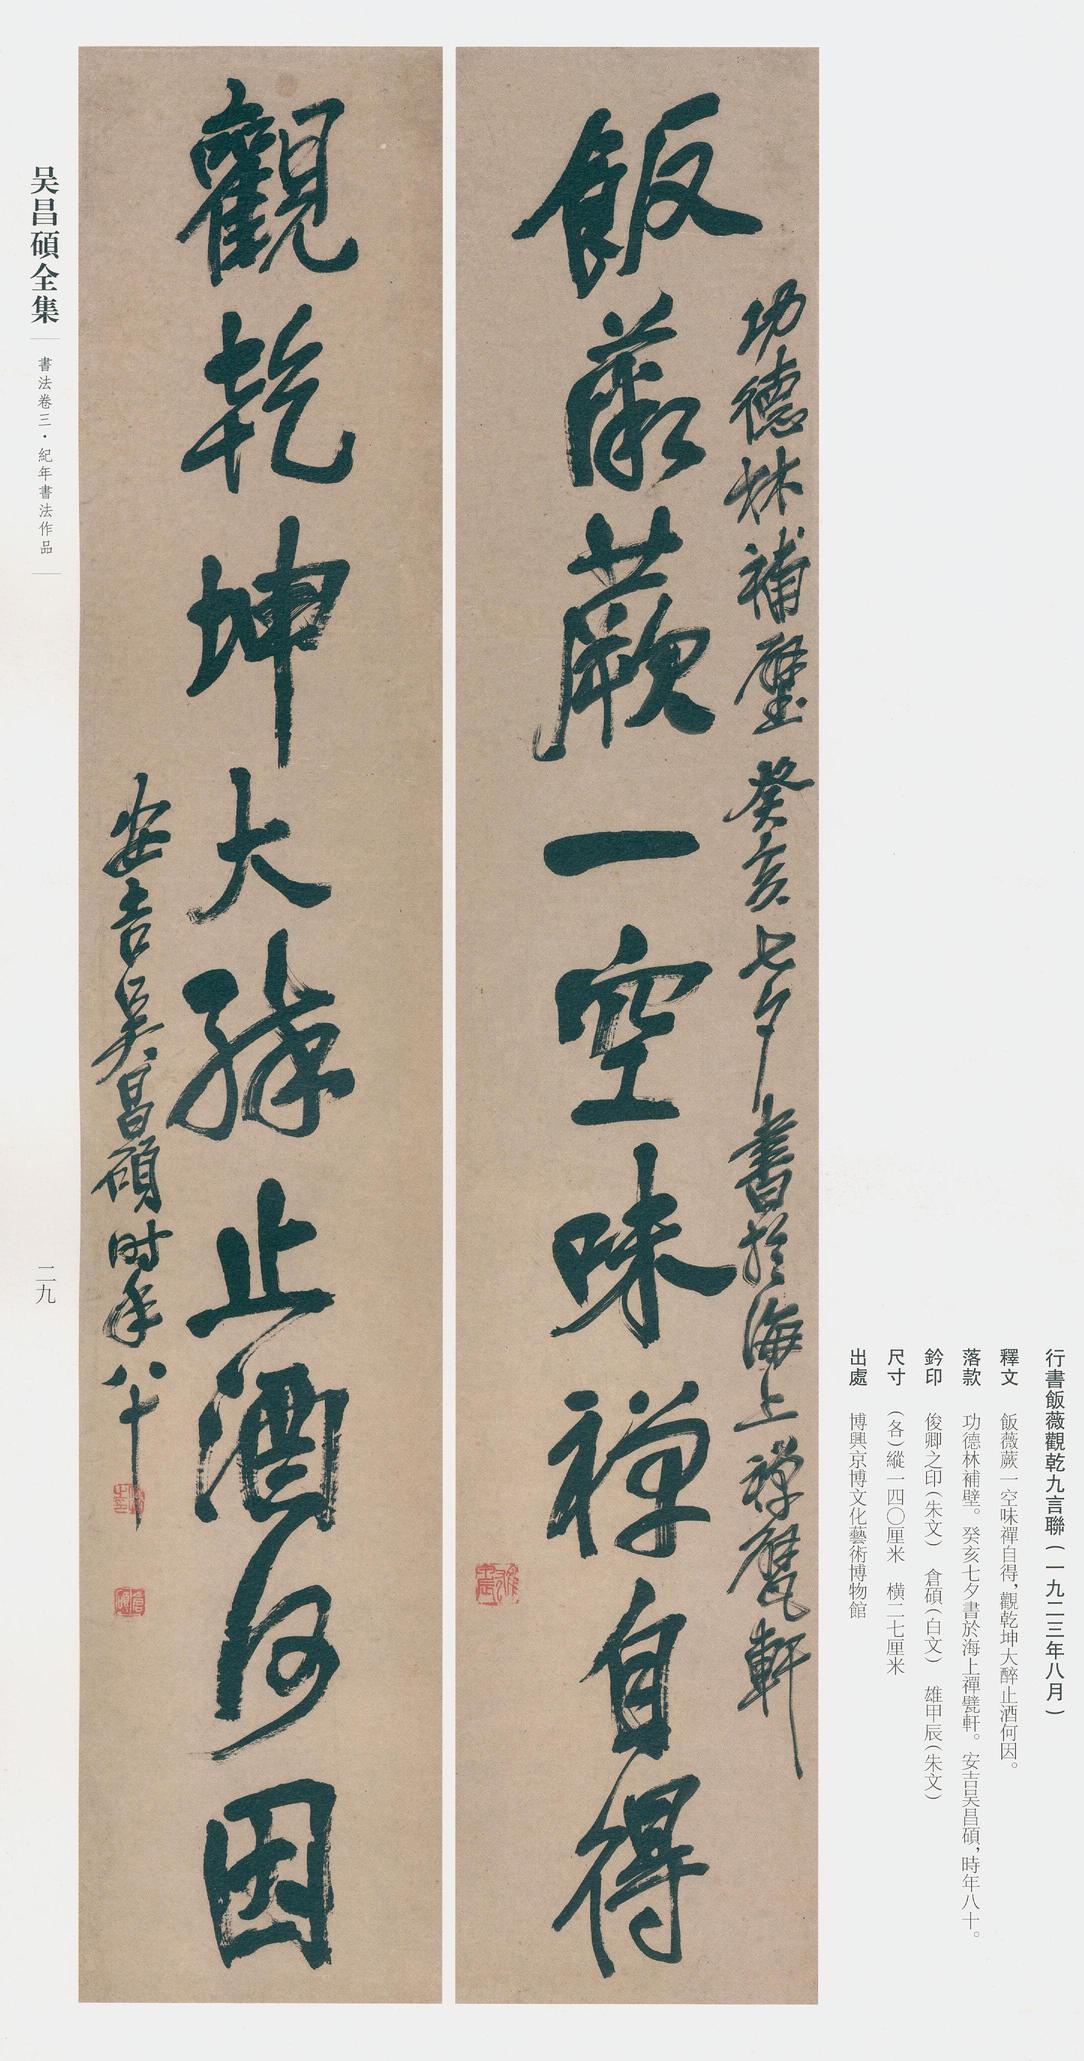 行書飯薇觀乾九言聯（一九二三年八月）
釋文　飯薇蕨一空味禪自得，觀乾坤大醉止酒何因。
落款　功德林補壁。癸亥七夕書於海上禪甓軒。安吉吳昌碩，時年八十。
鈐印　俊卿之印（朱文）　倉碩（白文）　雄甲辰（朱文）
尺寸　（各）縱一四〇厘米　橫二七厘米
出處　博興京博文化藝術博物館
功德林補壁 癸亥七夕書於海上禪甓軒
飯薇蕨一空味禪自得
雄甲辰
觀乾坤大醉止酒何因
安吉吳昌碩时年八十
俊卿之印
倉碩
吴昌碩全集
書法卷三·紀年書法作品
二九